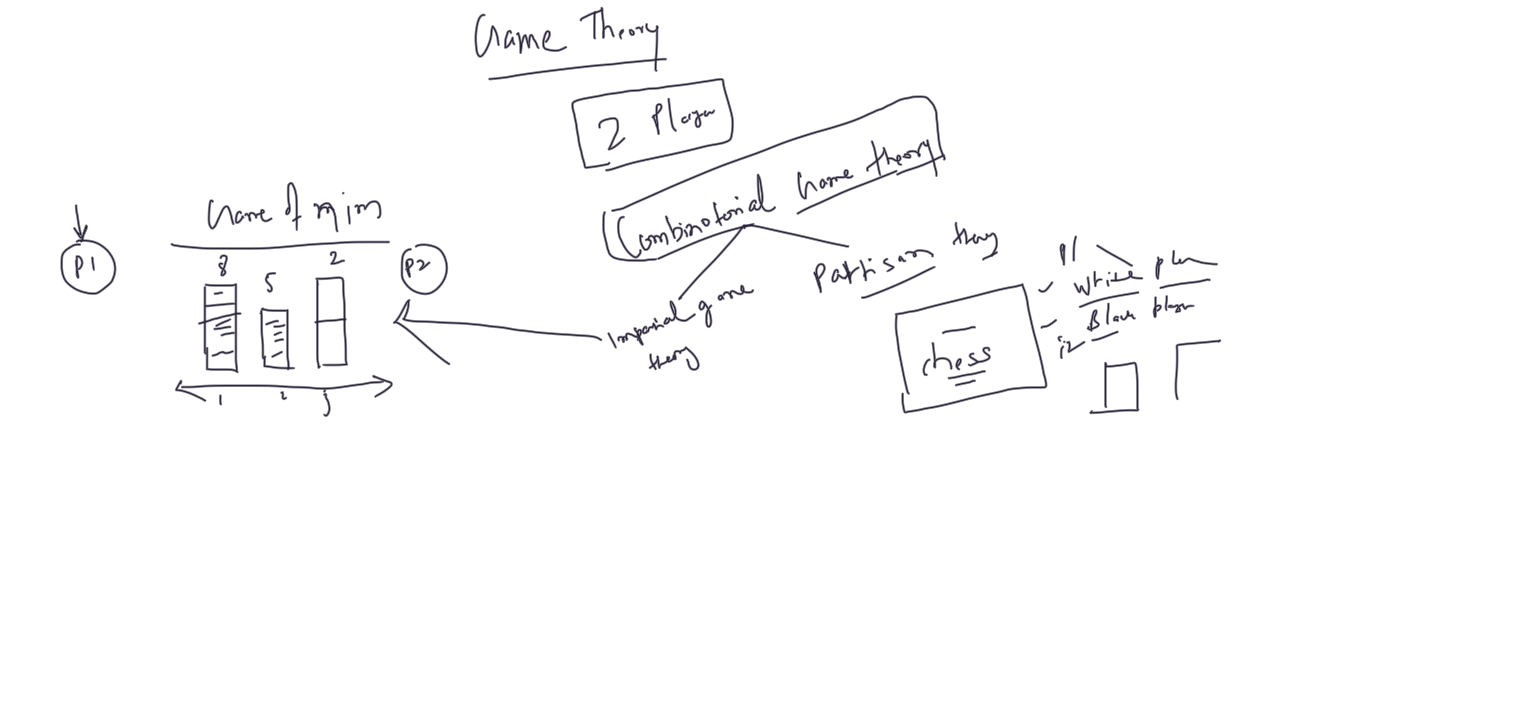 Game Theory
2 Player
Combinotorial Game theory
Game of nim
P1
8
5
2
P2
1
2
3
Imparial game
theory
Partisan thory
chess
P1
White player
Black player